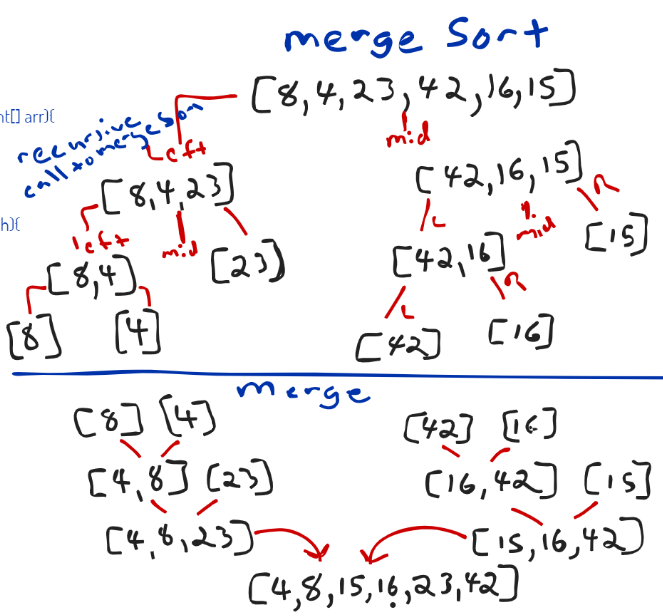 merge Sort
[8,4,23,42,16,15]
nt[] arr){
recursive
call to mergeSort
Left
mid
[8,4,23]
[42,16,15]
R
h){
left
mid
L
mid
[15]
[23]
[8,4]
[42,16]
R
L
[8]
[4]
[42]
[16]
merge
[8] [4]
[42] [16]
[4,8] [23]
[16,42] [15]
[4,8,23]
[15,16,42]
[4,8,15,16,23,42]